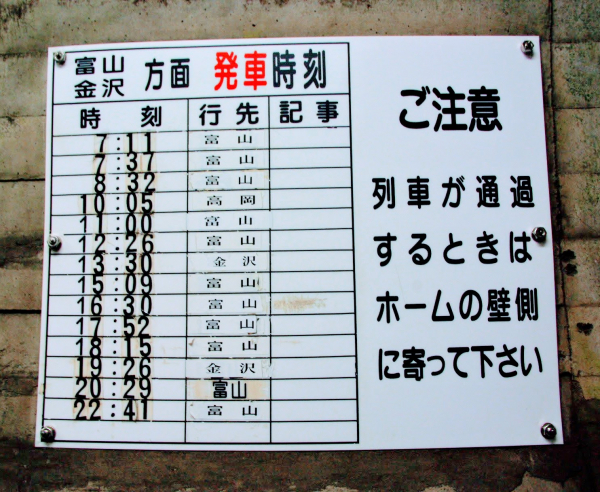 富山
金沢 方面 発車時刻
時刻 行先 記事
7:11 富山
7:37 富山
8:32 富山
10:05 高岡
11:00 富山
12:26 富山
13:30 金沢
15:09 富山
16:30 富山
17:52 富山
18:15 富山
19:26 金沢
20:29 富山
22:41 富山
ご注意
列車が通過
するときは
ホームの壁側
に寄って下さい